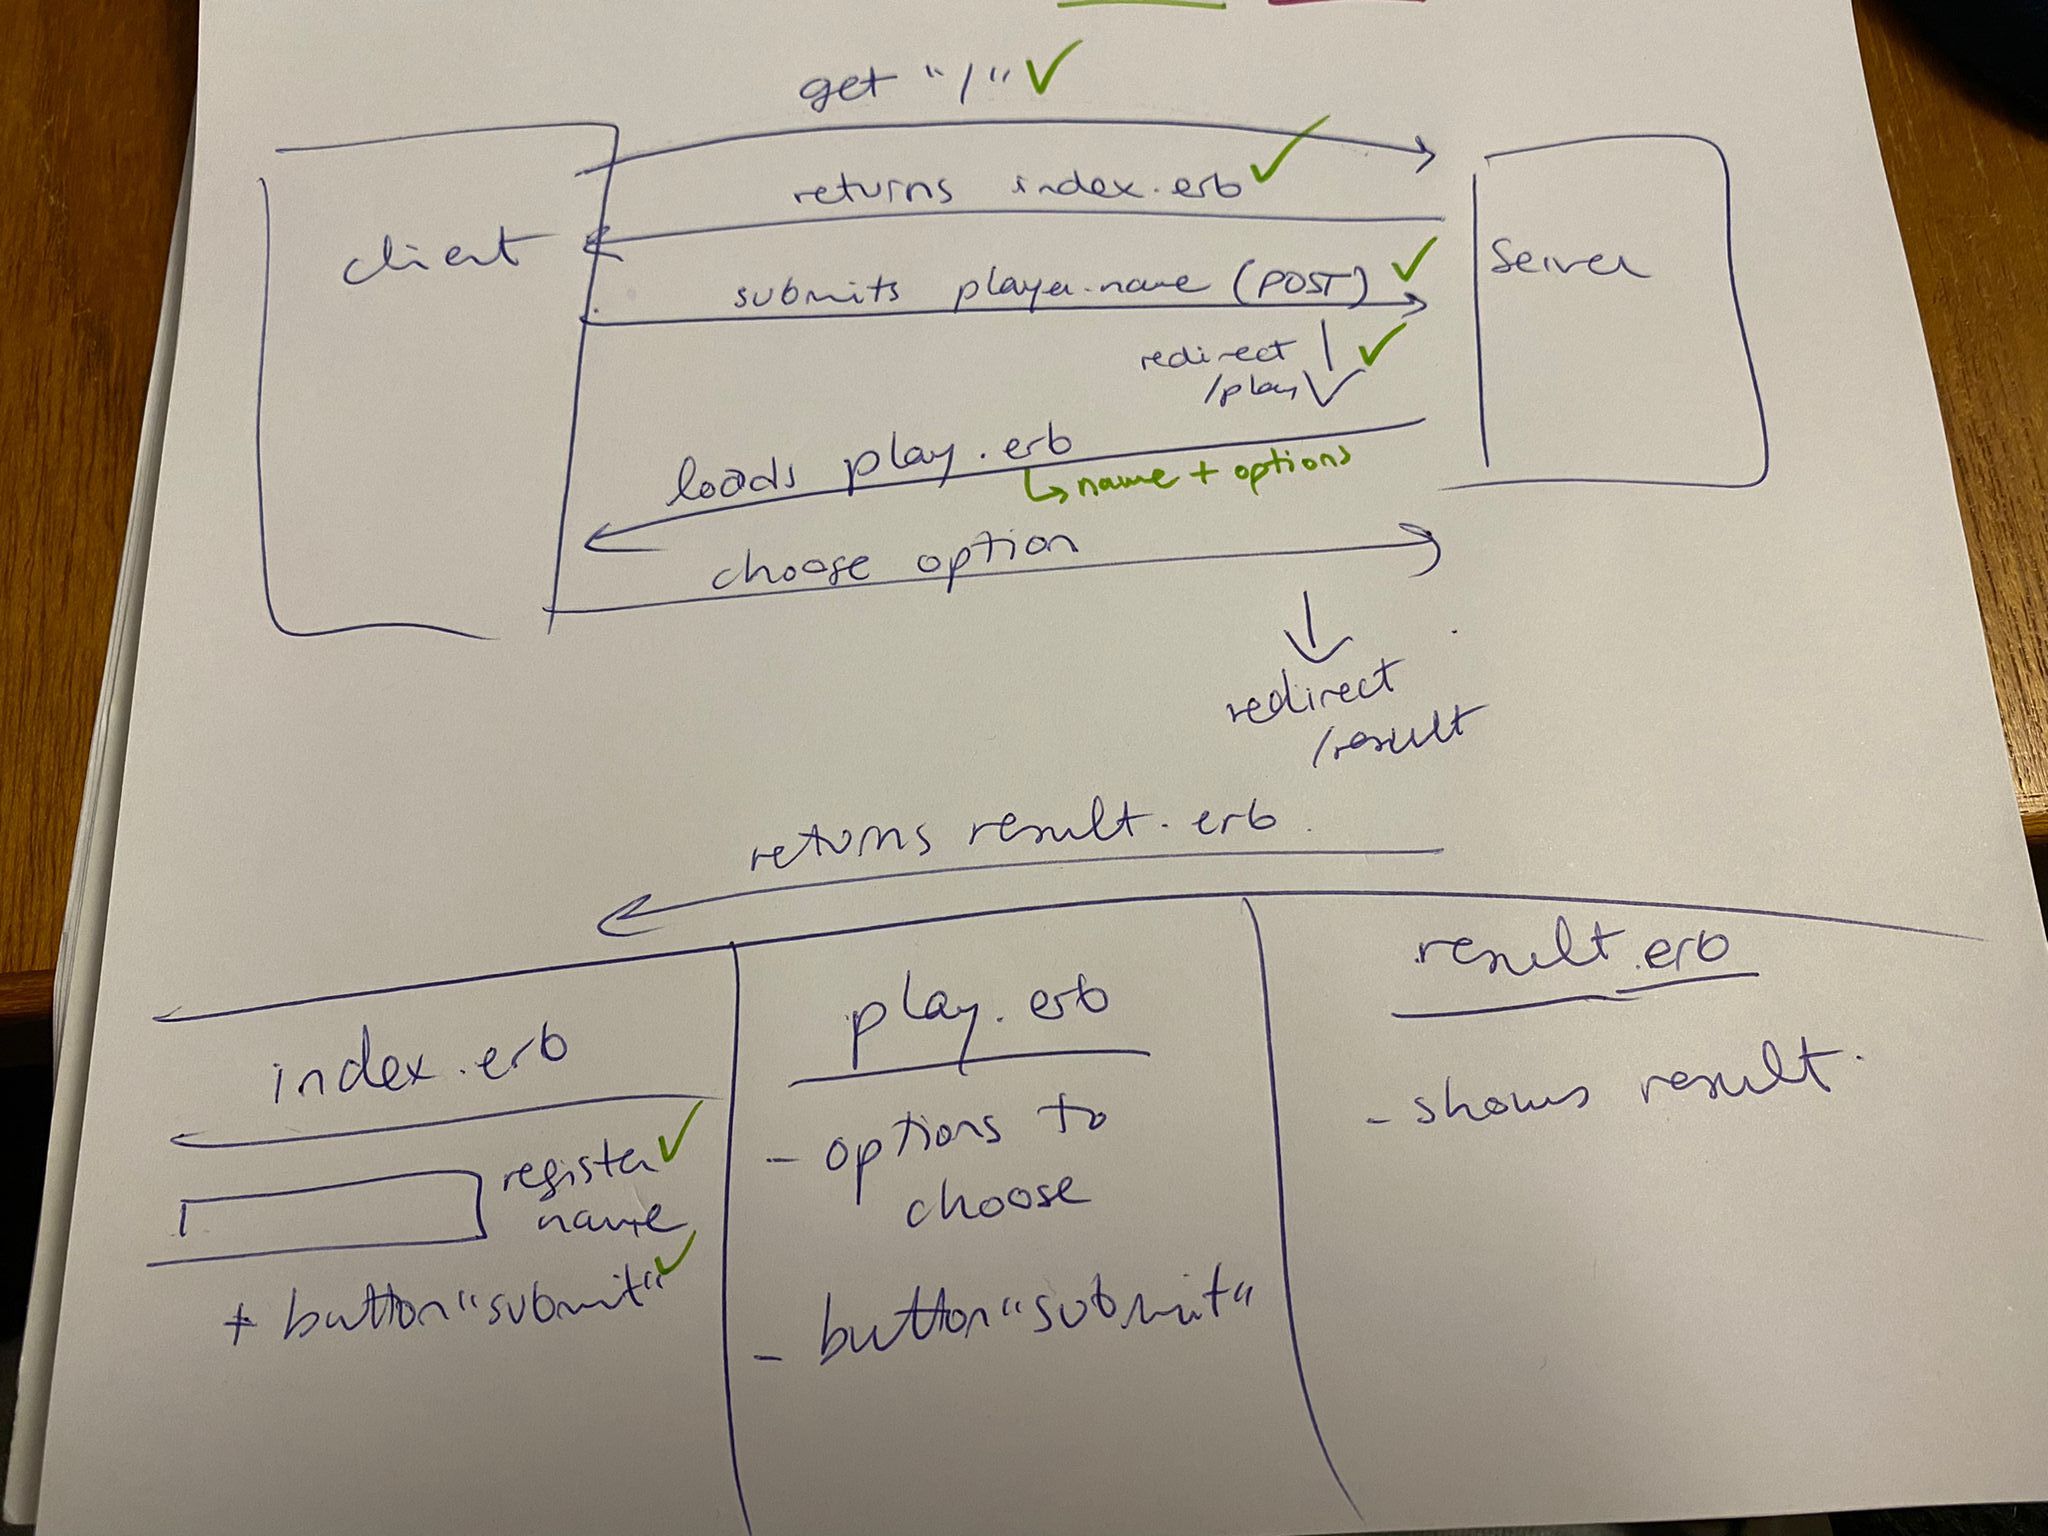 get "/"
returns index.erb
client
Server
submits player.name (POST)
redirect
/play
loads play.erb
↳ name + options
choose option
redirect
/result
returns result.erb.
index.erb
register
name
+ button "submit"
play.erb
- options to
choose
- button "submit"
result.erb
- shows result.